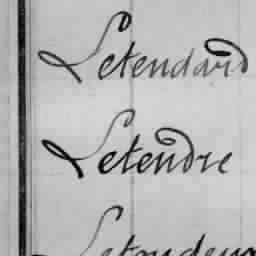 Letendard
Letendre